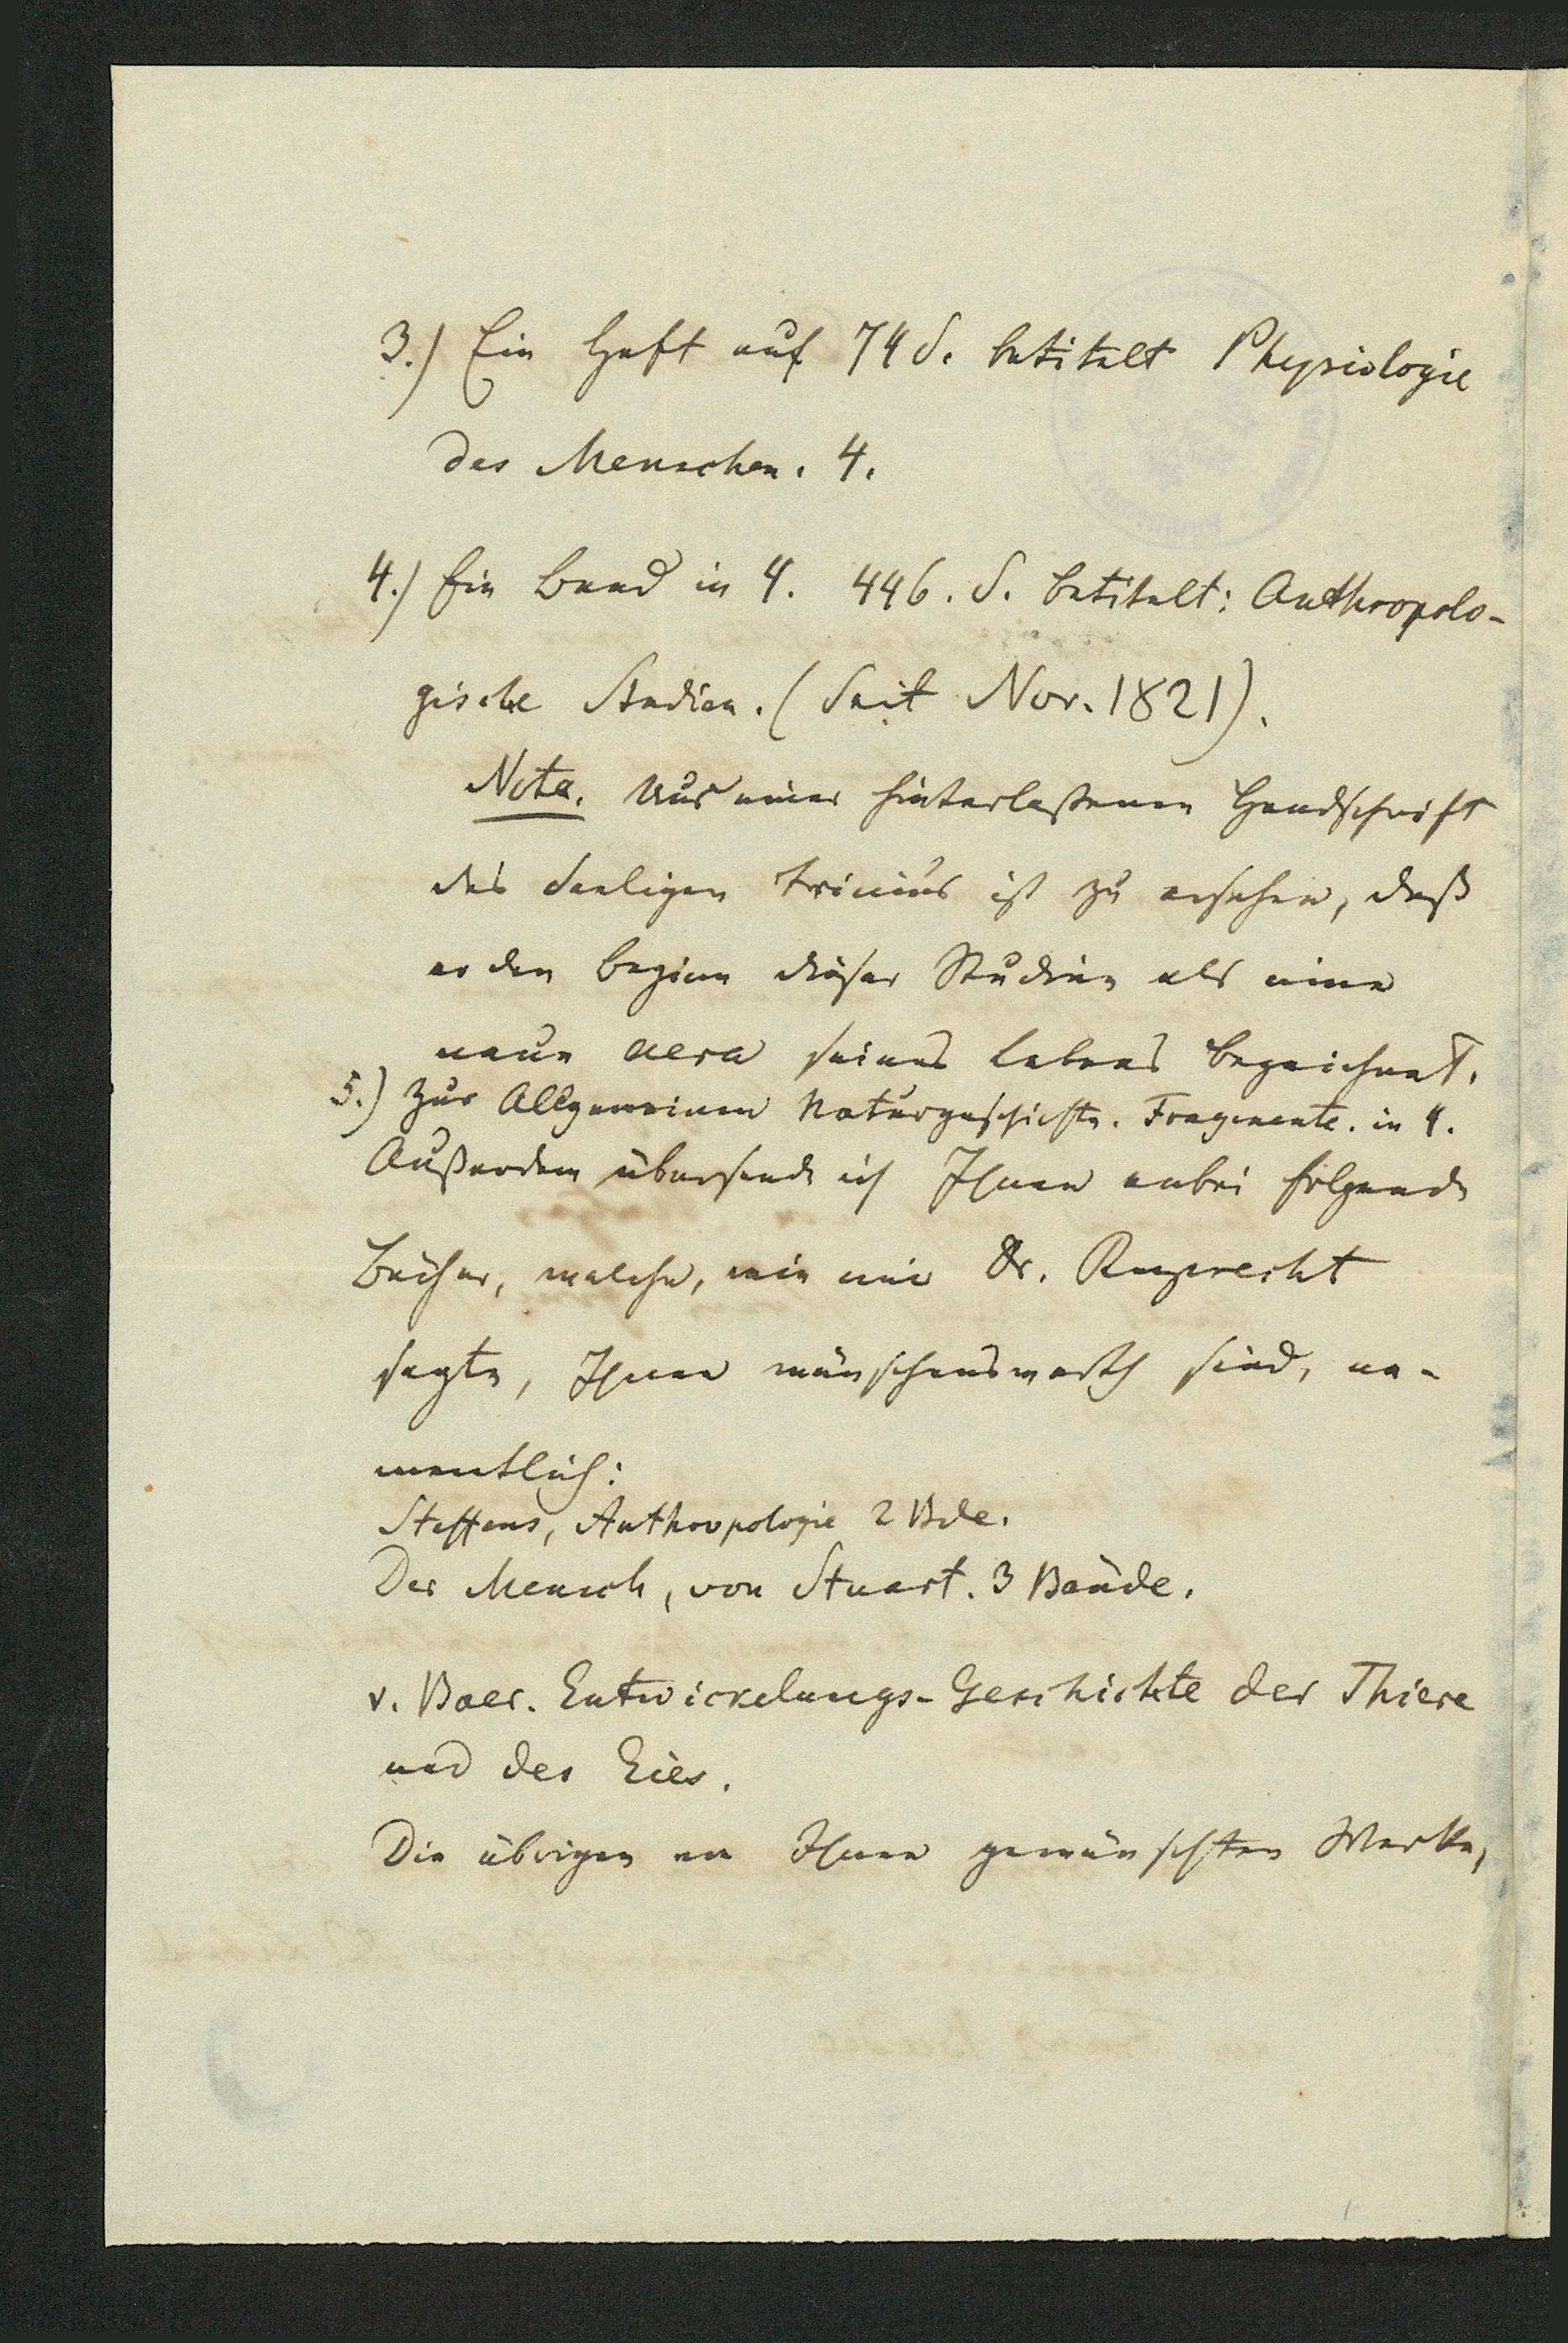 3.) Ein Heft auf 74 S. betitelt Physiologie
des Menschen. 4.
4.) Ein Band in 4. 446. S. betitelt: Anthropolo-
gische Studien. (Seit Nov. 1821).
Nota. Aus einer hinterlaßenen Handschrift
des Seeligen Trinius ist zu ersehen, daß
er den Beginn dieser Studien als eine
neue Aera seines Lebens bezeichnet.
5.) Zur Allgemeinen Naturgeschichte. Fragmente. in 4.
Außerdem übersende ich Ihnen anbei folgende
Bücher, welche, wie mir Dr. Ruprecht
sagte, Ihnen wünschenswerth sind, na-
mentlich:
Steffens, Anthropologie 2 Bde.
Der Mensch, von Stuart. 3 Bände.
v. Baer. Entwickelungs-Geschichte der Thiere
und des Eies.
Die übrigen von Ihnen gewünschten Werke,